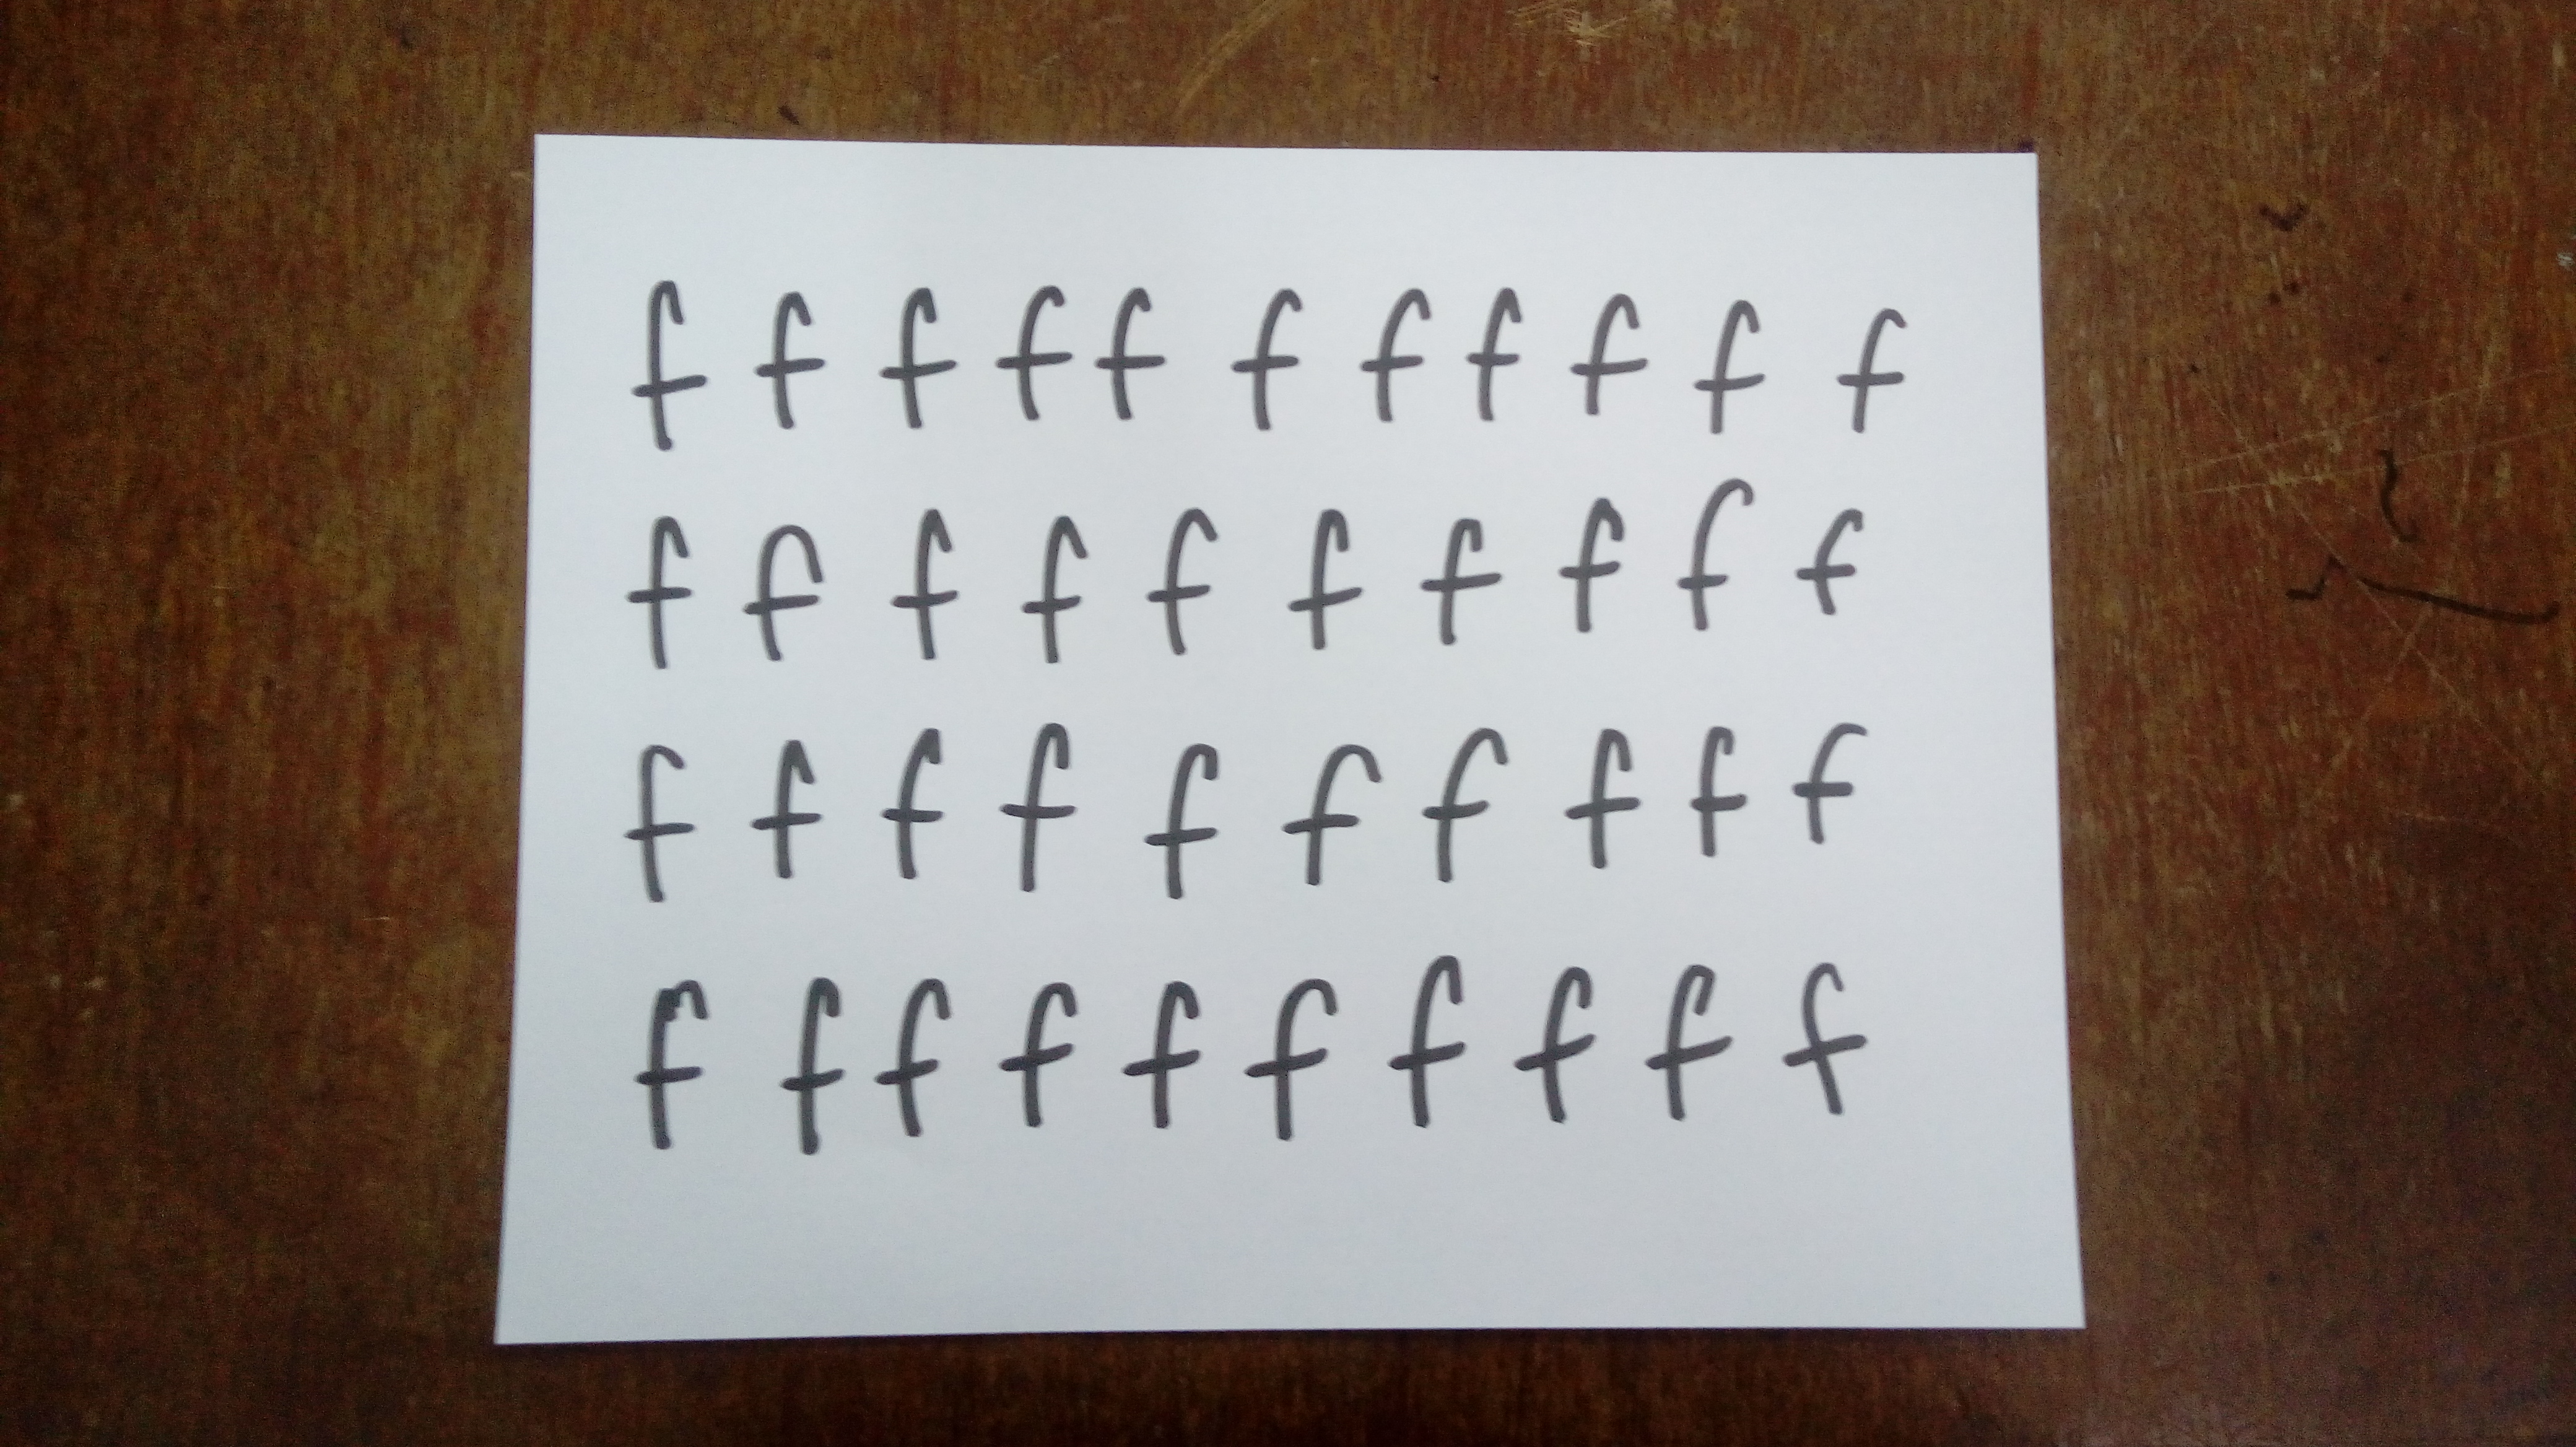 f f f f f f f f f f f
f f f f f f f f f f
f f f f f f f f f f
f f f f f f f f f f